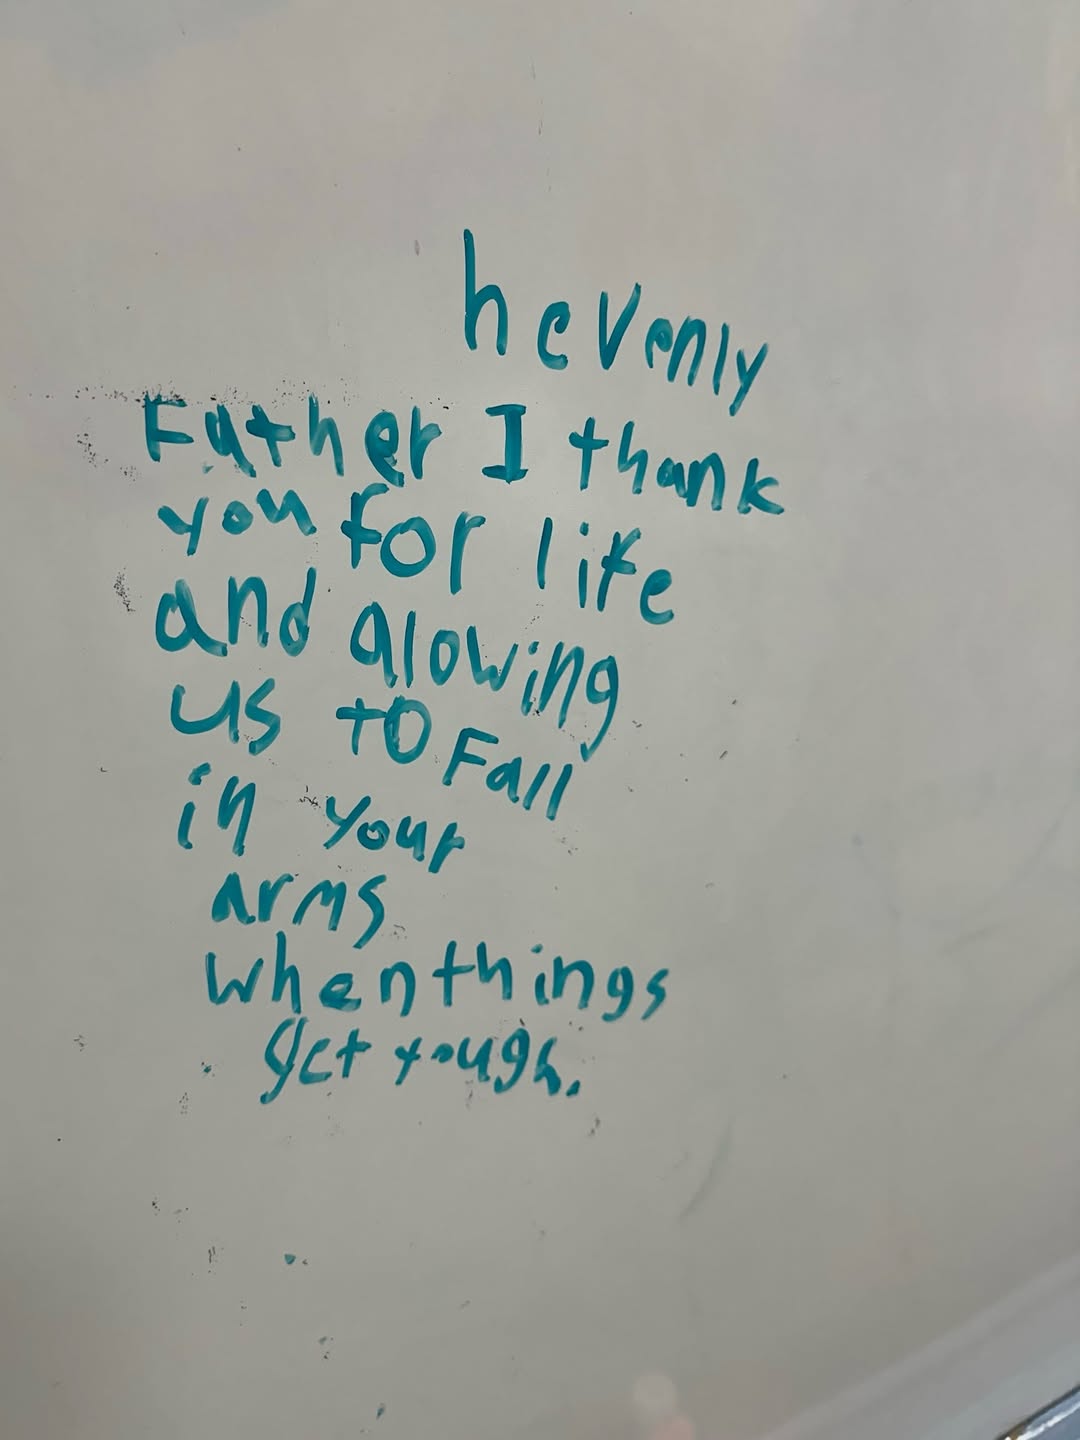 hevenly
Father I thank
you for life
and alowing
us to Fall
in your
arms
when things
get tough.